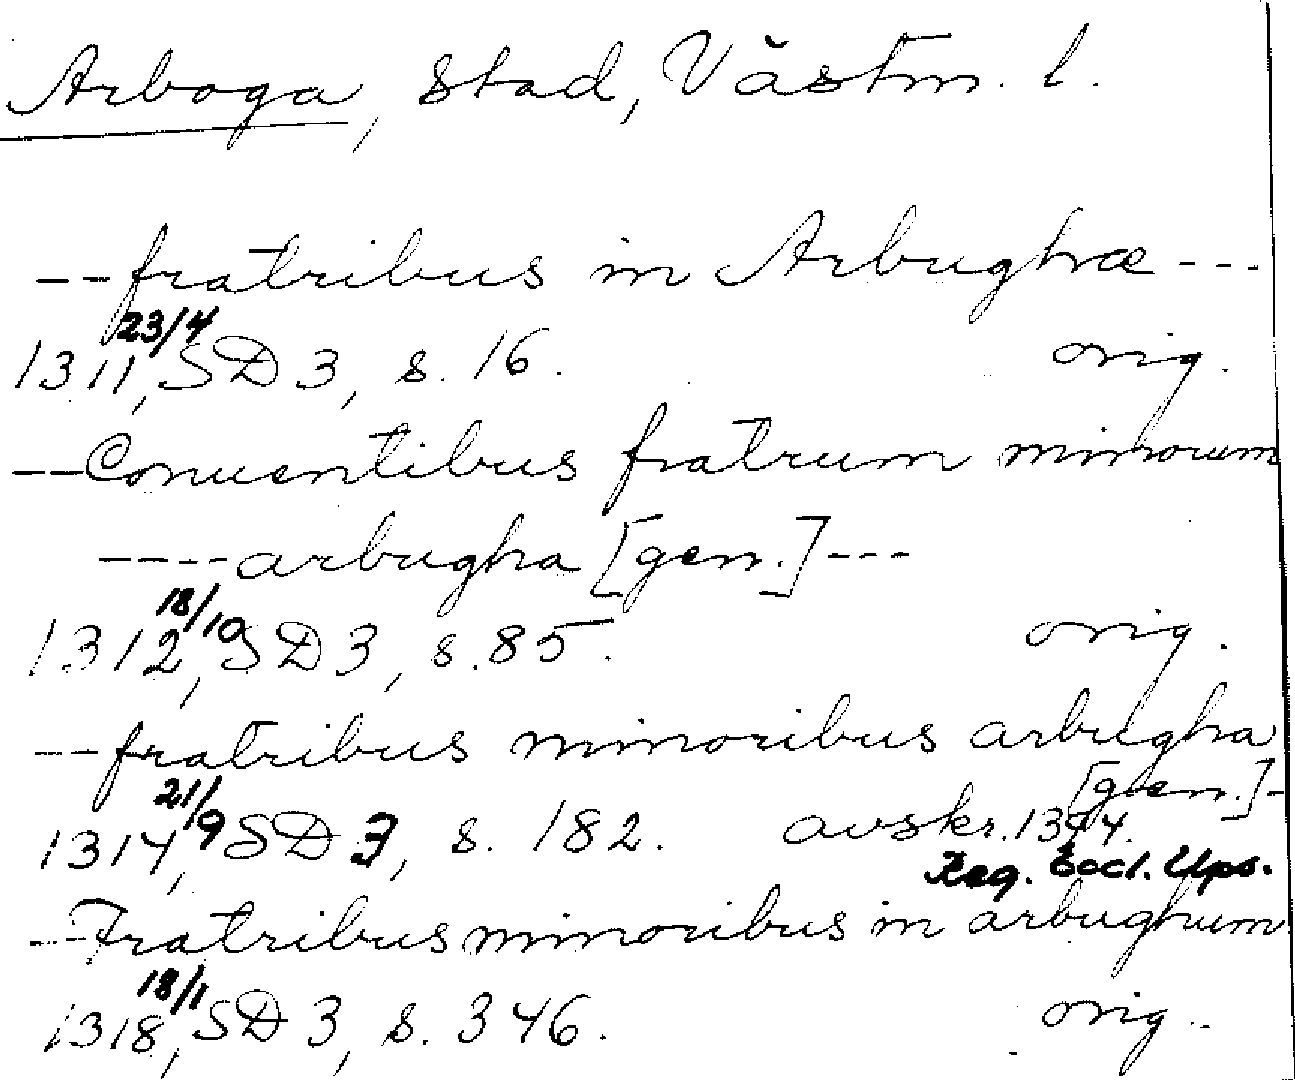 Arboga, stad, Västm. l.
--fratribus in Arbughræ---
23/4
1311, SD 3, s. 16. orig.
--Conuentibus fratrum minorum
----arbugha [gen.]---
18/10
1312, SD 3, s. 85. orig.
--fratribus minoribus arbugha
[gen.]-
21/9
1314, SD 3, s. 182. avskr. 1344.
Reg. Eccl. Ups.
--Fratribus minoribus in arbughum
18/1
1318, SD 3, s. 346. orig.